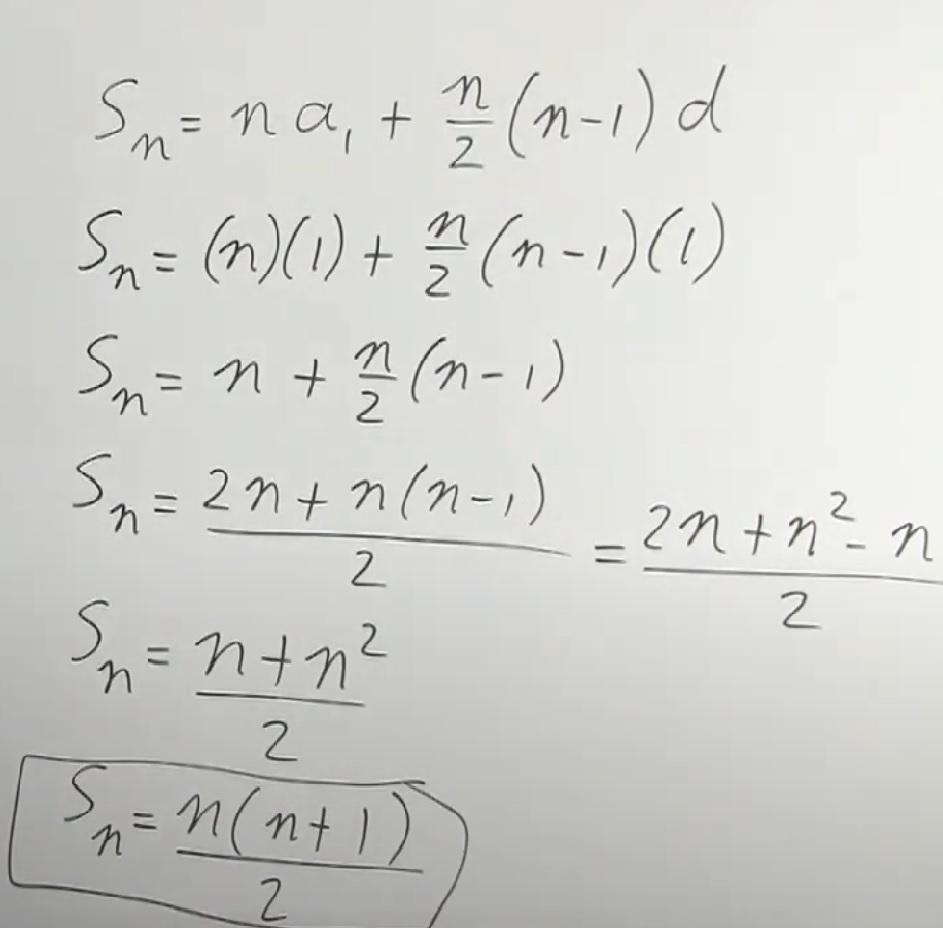 Sₙ = n a₁ + n/2 (n-1) d
Sₙ = (n)(1) + n/2 (n-1)(1)
Sₙ = n + n/2 (n-1)
Sₙ = (2n + n(n-1))/2 = (2n + n² - n)/2
Sₙ = (n + n²)/2
Sₙ = n(n+1)/2